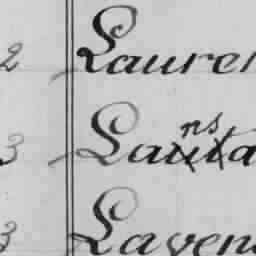 2 Lauren
3 Lansta
3 Laven